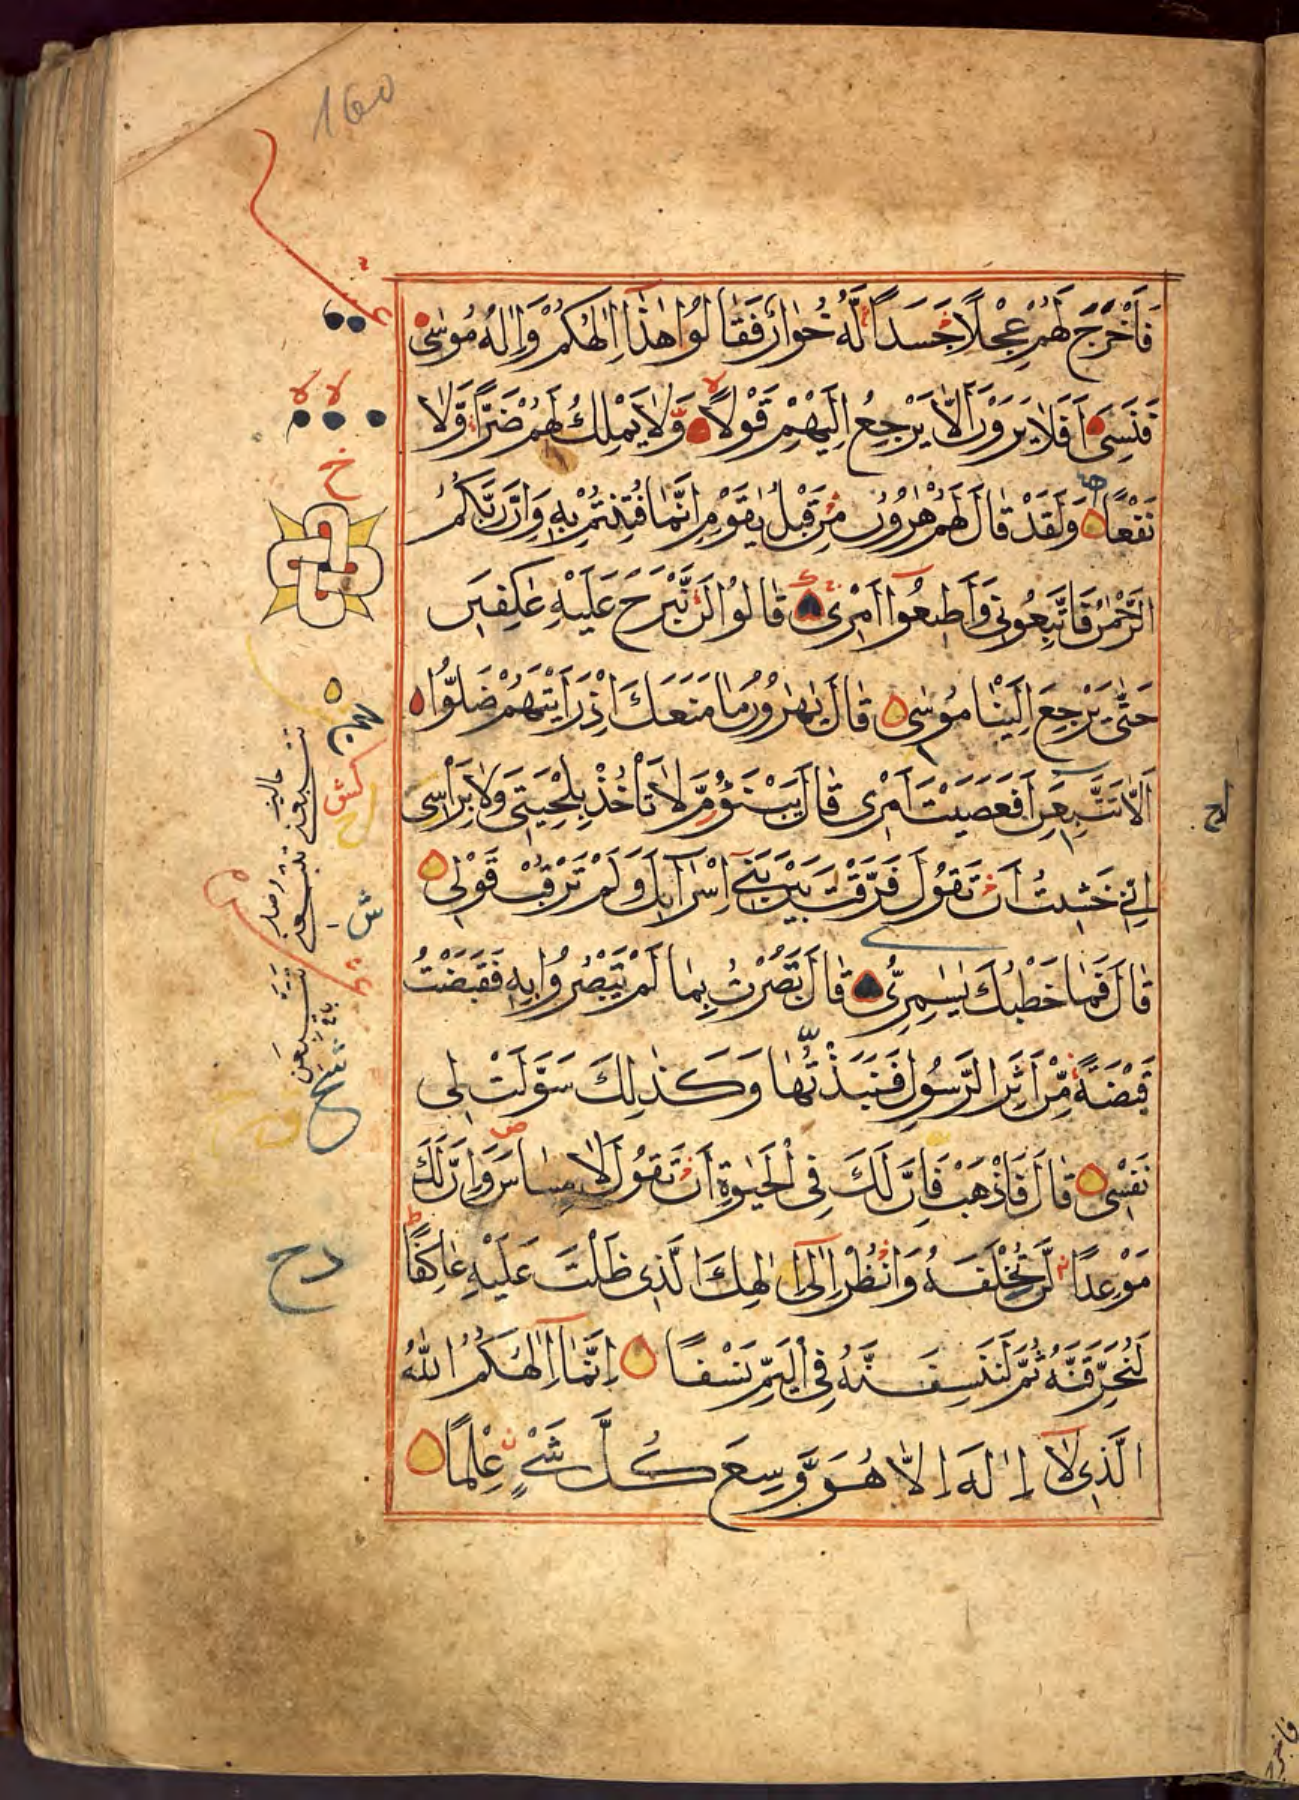 160
فَأَخْرَجَ لَهُمْ عِجْلًا جَسَدًا لَّهُ خُوَارٌ فَقَالُوا هٰذَا إِلٰهُكُمْ وَإِلٰهُ مُوسٰى
فَنَسِىَ أَفَلَا يَرَوْنَ أَلَّا يَرْجِعُ إِلَيْهِمْ قَوْلًا وَّلَا يَمْلِكُ لَهُمْ ضَرًّا وَّلَا
نَفْعًا وَلَقَدْ قَالَ لَهُمْ هٰرُونُ مِنْ قَبْلُ يٰقَوْمِ إِنَّمَا فُتِنْتُمْ بِهِ وَإِنَّ رَبَّكُمُ
الرَّحْمٰنُ فَاتَّبِعُونِى وَأَطِيعُوا أَمْرِى قَالُوا لَنْ نَّبْرَحَ عَلَيْهِ عٰكِفِينَ
حَتّٰى يَرْجِعَ إِلَيْنَا مُوسٰى قَالَ يٰهٰرُونُ مَا مَنَعَكَ إِذْ رَأَيْتَهُمْ ضَلُّوا
أَلَّا تَتَّبِعَنِ أَفَعَصَيْتَ أَمْرِى قَالَ يَبْنَؤُمَّ لَا تَأْخُذْ بِلِحْيَتِى وَلَا بِرَأْسِى
إِنِّى خَشِيتُ أَنْ تَقُولَ فَرَّقْتَ بَيْنَ بَنِى إِسْرَآئِيلَ وَلَمْ تَرْقُبْ قَوْلِى
قَالَ فَمَا خَطْبُكَ يٰسٰمِرِىُّ قَالَ بَصُرْتُ بِمَا لَمْ يَبْصُرُوا بِهِ فَقَبَضْتُ
قَبْضَةً مِّنْ أَثَرِ الرَّسُولِ فَنَبَذْتُهَا وَكَذٰلِكَ سَوَّلَتْ لِى
نَفْسِى قَالَ فَاذْهَبْ فَإِنَّ لَكَ فِى الْحَيٰوةِ أَنْ تَقُولَ لَا مِسَاسَ وَإِنَّ لَكَ
مَوْعِدًا لَّنْ تُخْلَفَهُ وَانْظُرْ إِلٰى إِلٰهِكَ الَّذِى ظَلْتَ عَلَيْهِ عَاكِفًا
لَنُحَرِّقَنَّهُ ثُمَّ لَنَنْسِفَنَّهُ فِى الْيَمِّ نَسْفًا إِنَّمَا إِلٰهُكُمُ اللّٰهُ
الَّذِى لَا إِلٰهَ إِلَّا هُوَ وَسِعَ كُلَّ شَىْءٍ عِلْمًا